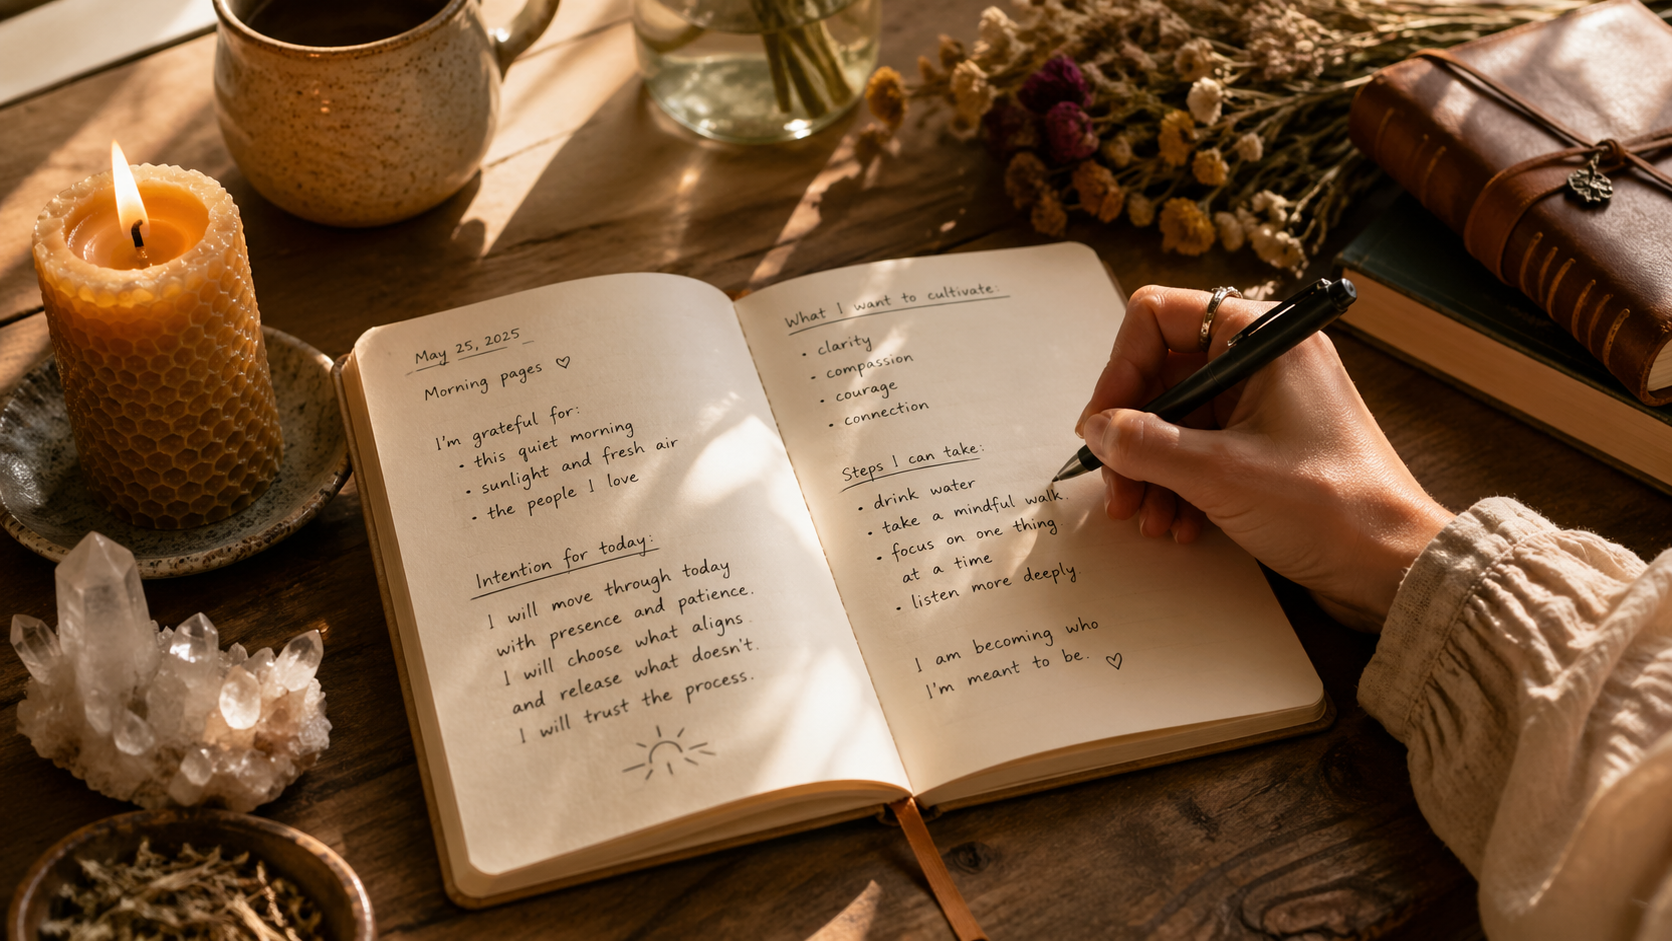 May 25, 2025
Morning pages ♡
I'm grateful for:
• this quiet morning
• sunlight and fresh air
• the people I love
Intention for today:
I will move through today
with presence and patience.
I will choose what aligns
and release what doesn't.
I will trust the process.
What I want to cultivate:
• clarity
• compassion
• courage
• connection
Steps I can take:
• drink water
• take a mindful walk.
• focus on one thing
at a time
• listen more deeply.
I am becoming who
I'm meant to be. ♡